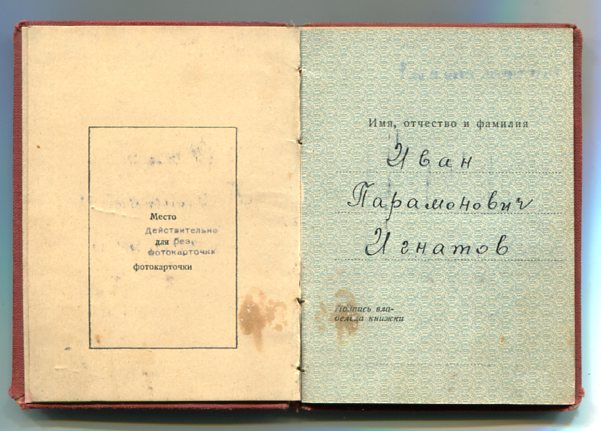 Место
Действительно
для без
фотокарточки
фотокарточки
Имя, отчество и фамилия
Иван
Парамонович
Игнатов
Подпись вла-
дельца книжки